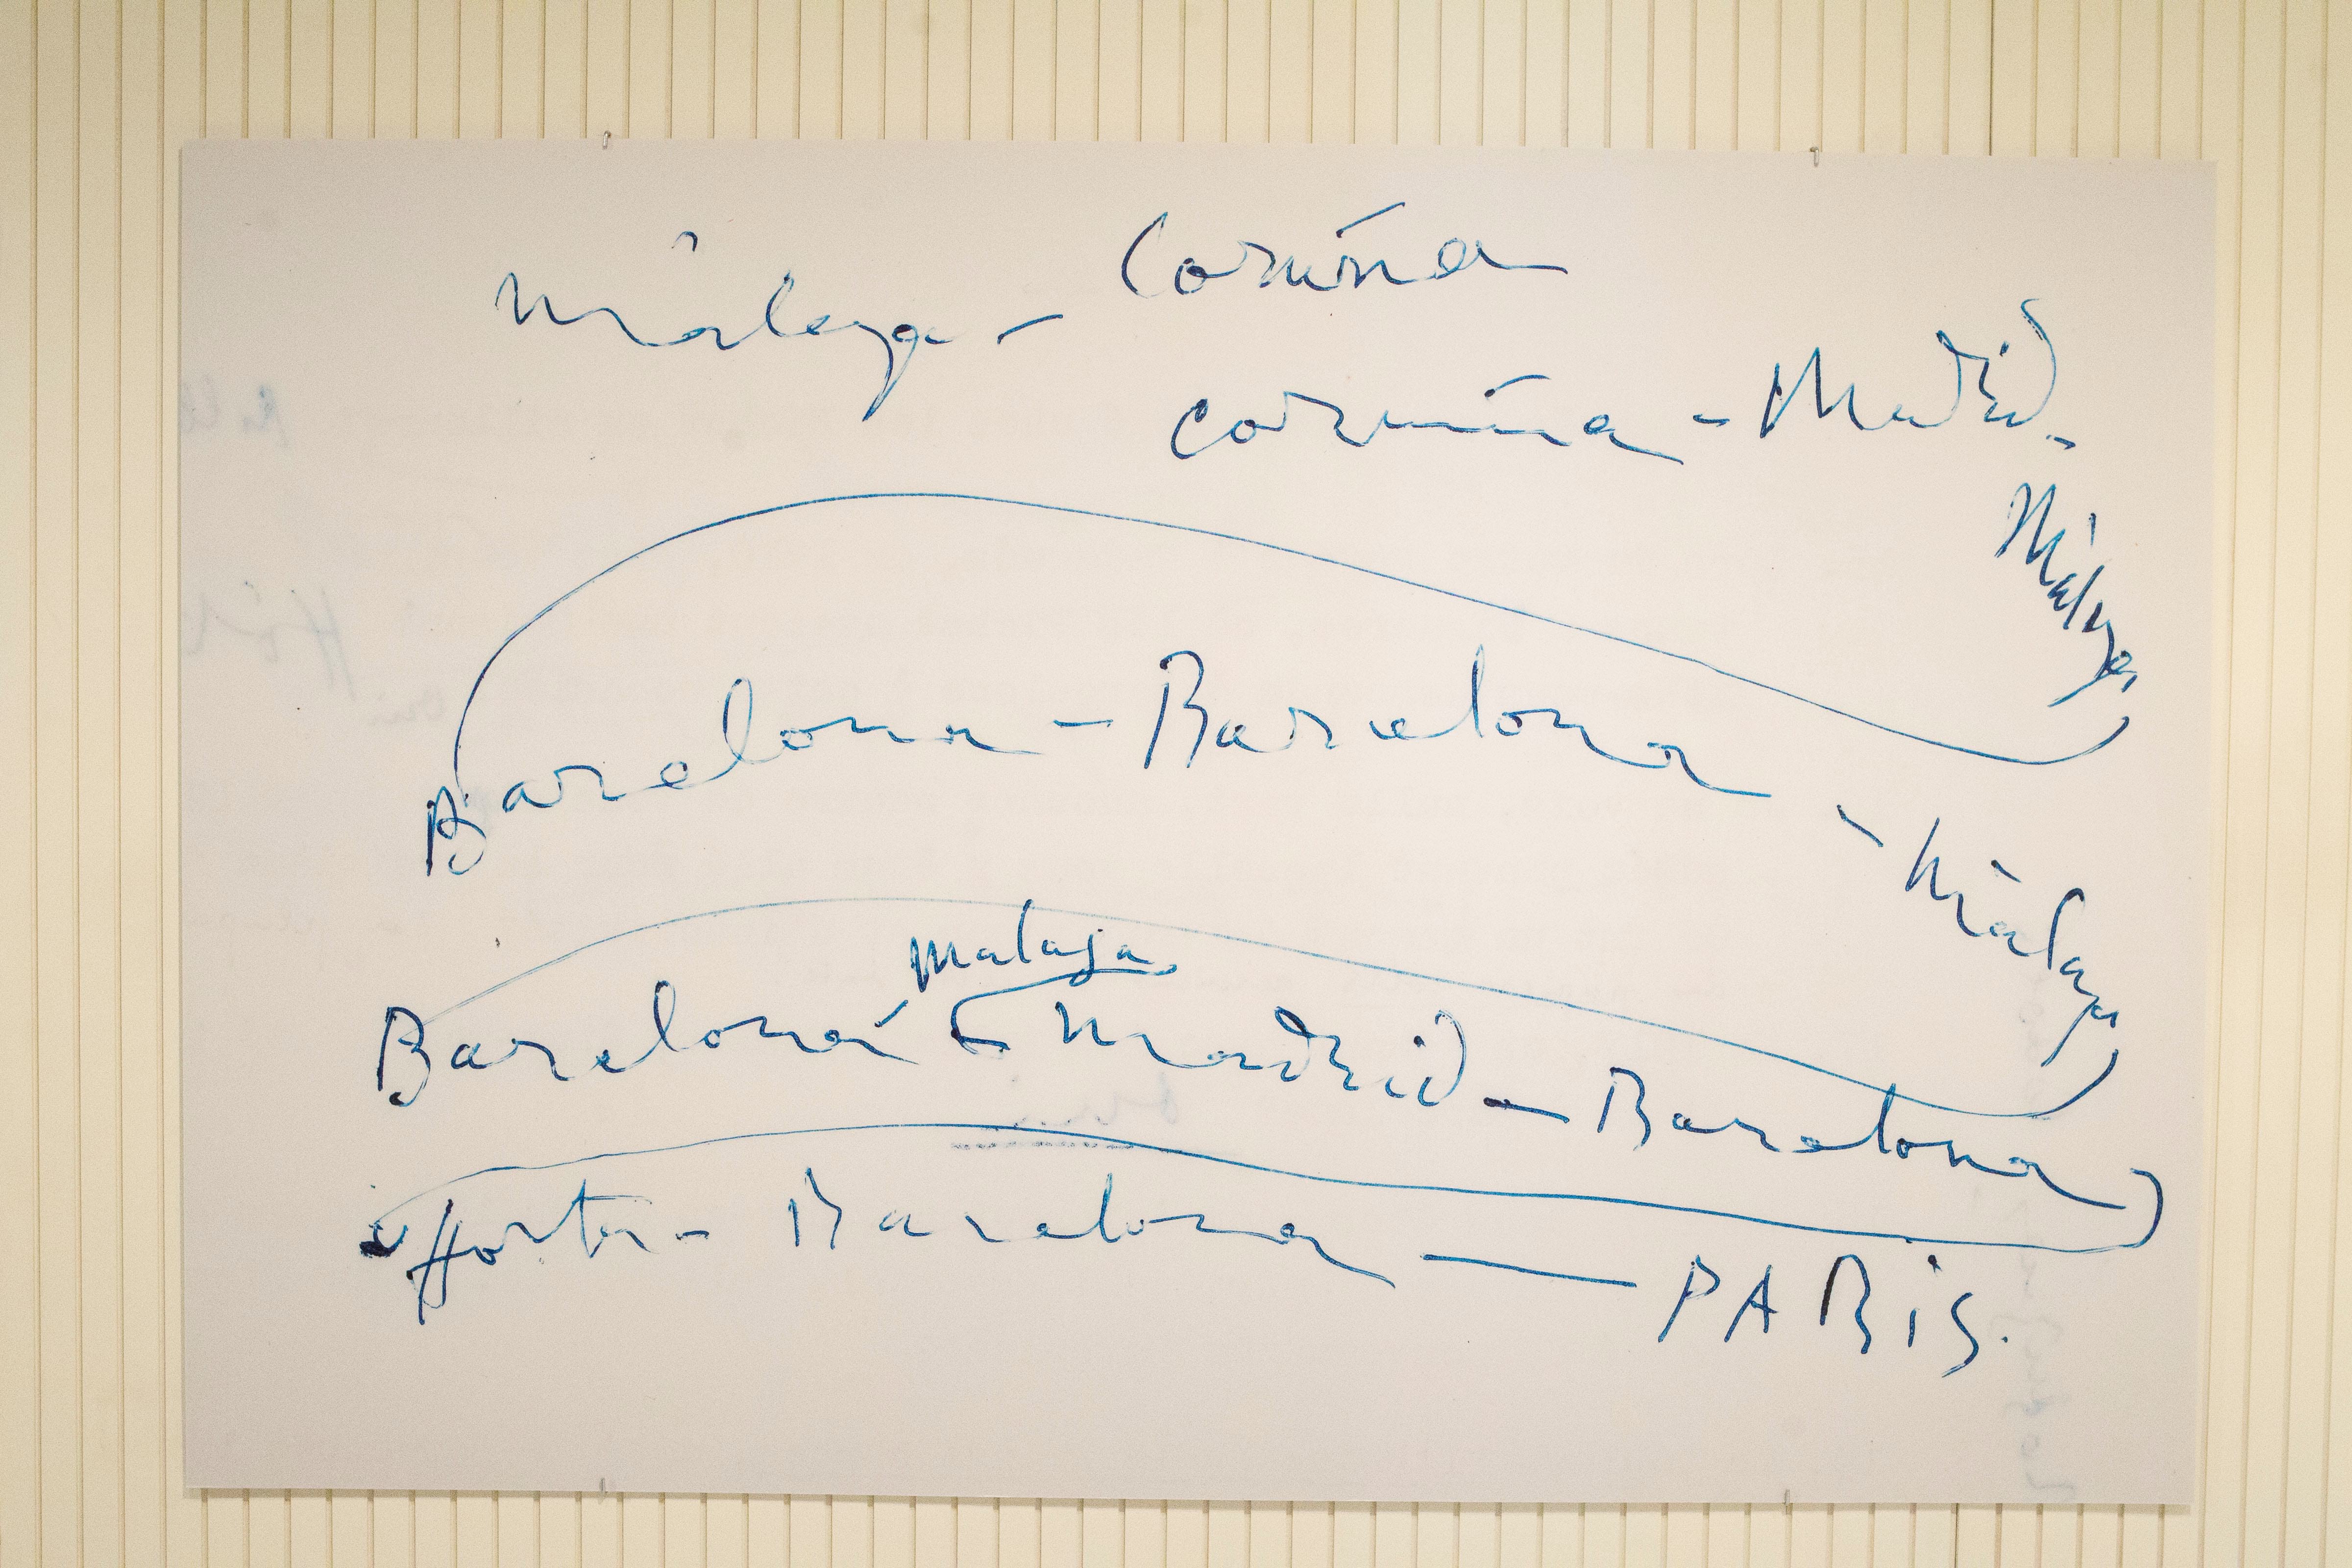 Málaga - Coruña
Coruña - Madrid -
Málaga
Barcelona - Barcelona - Málaga
Malaga
Barcelona - Madrid - Barcelona
Horta - Barcelona — PARiS.